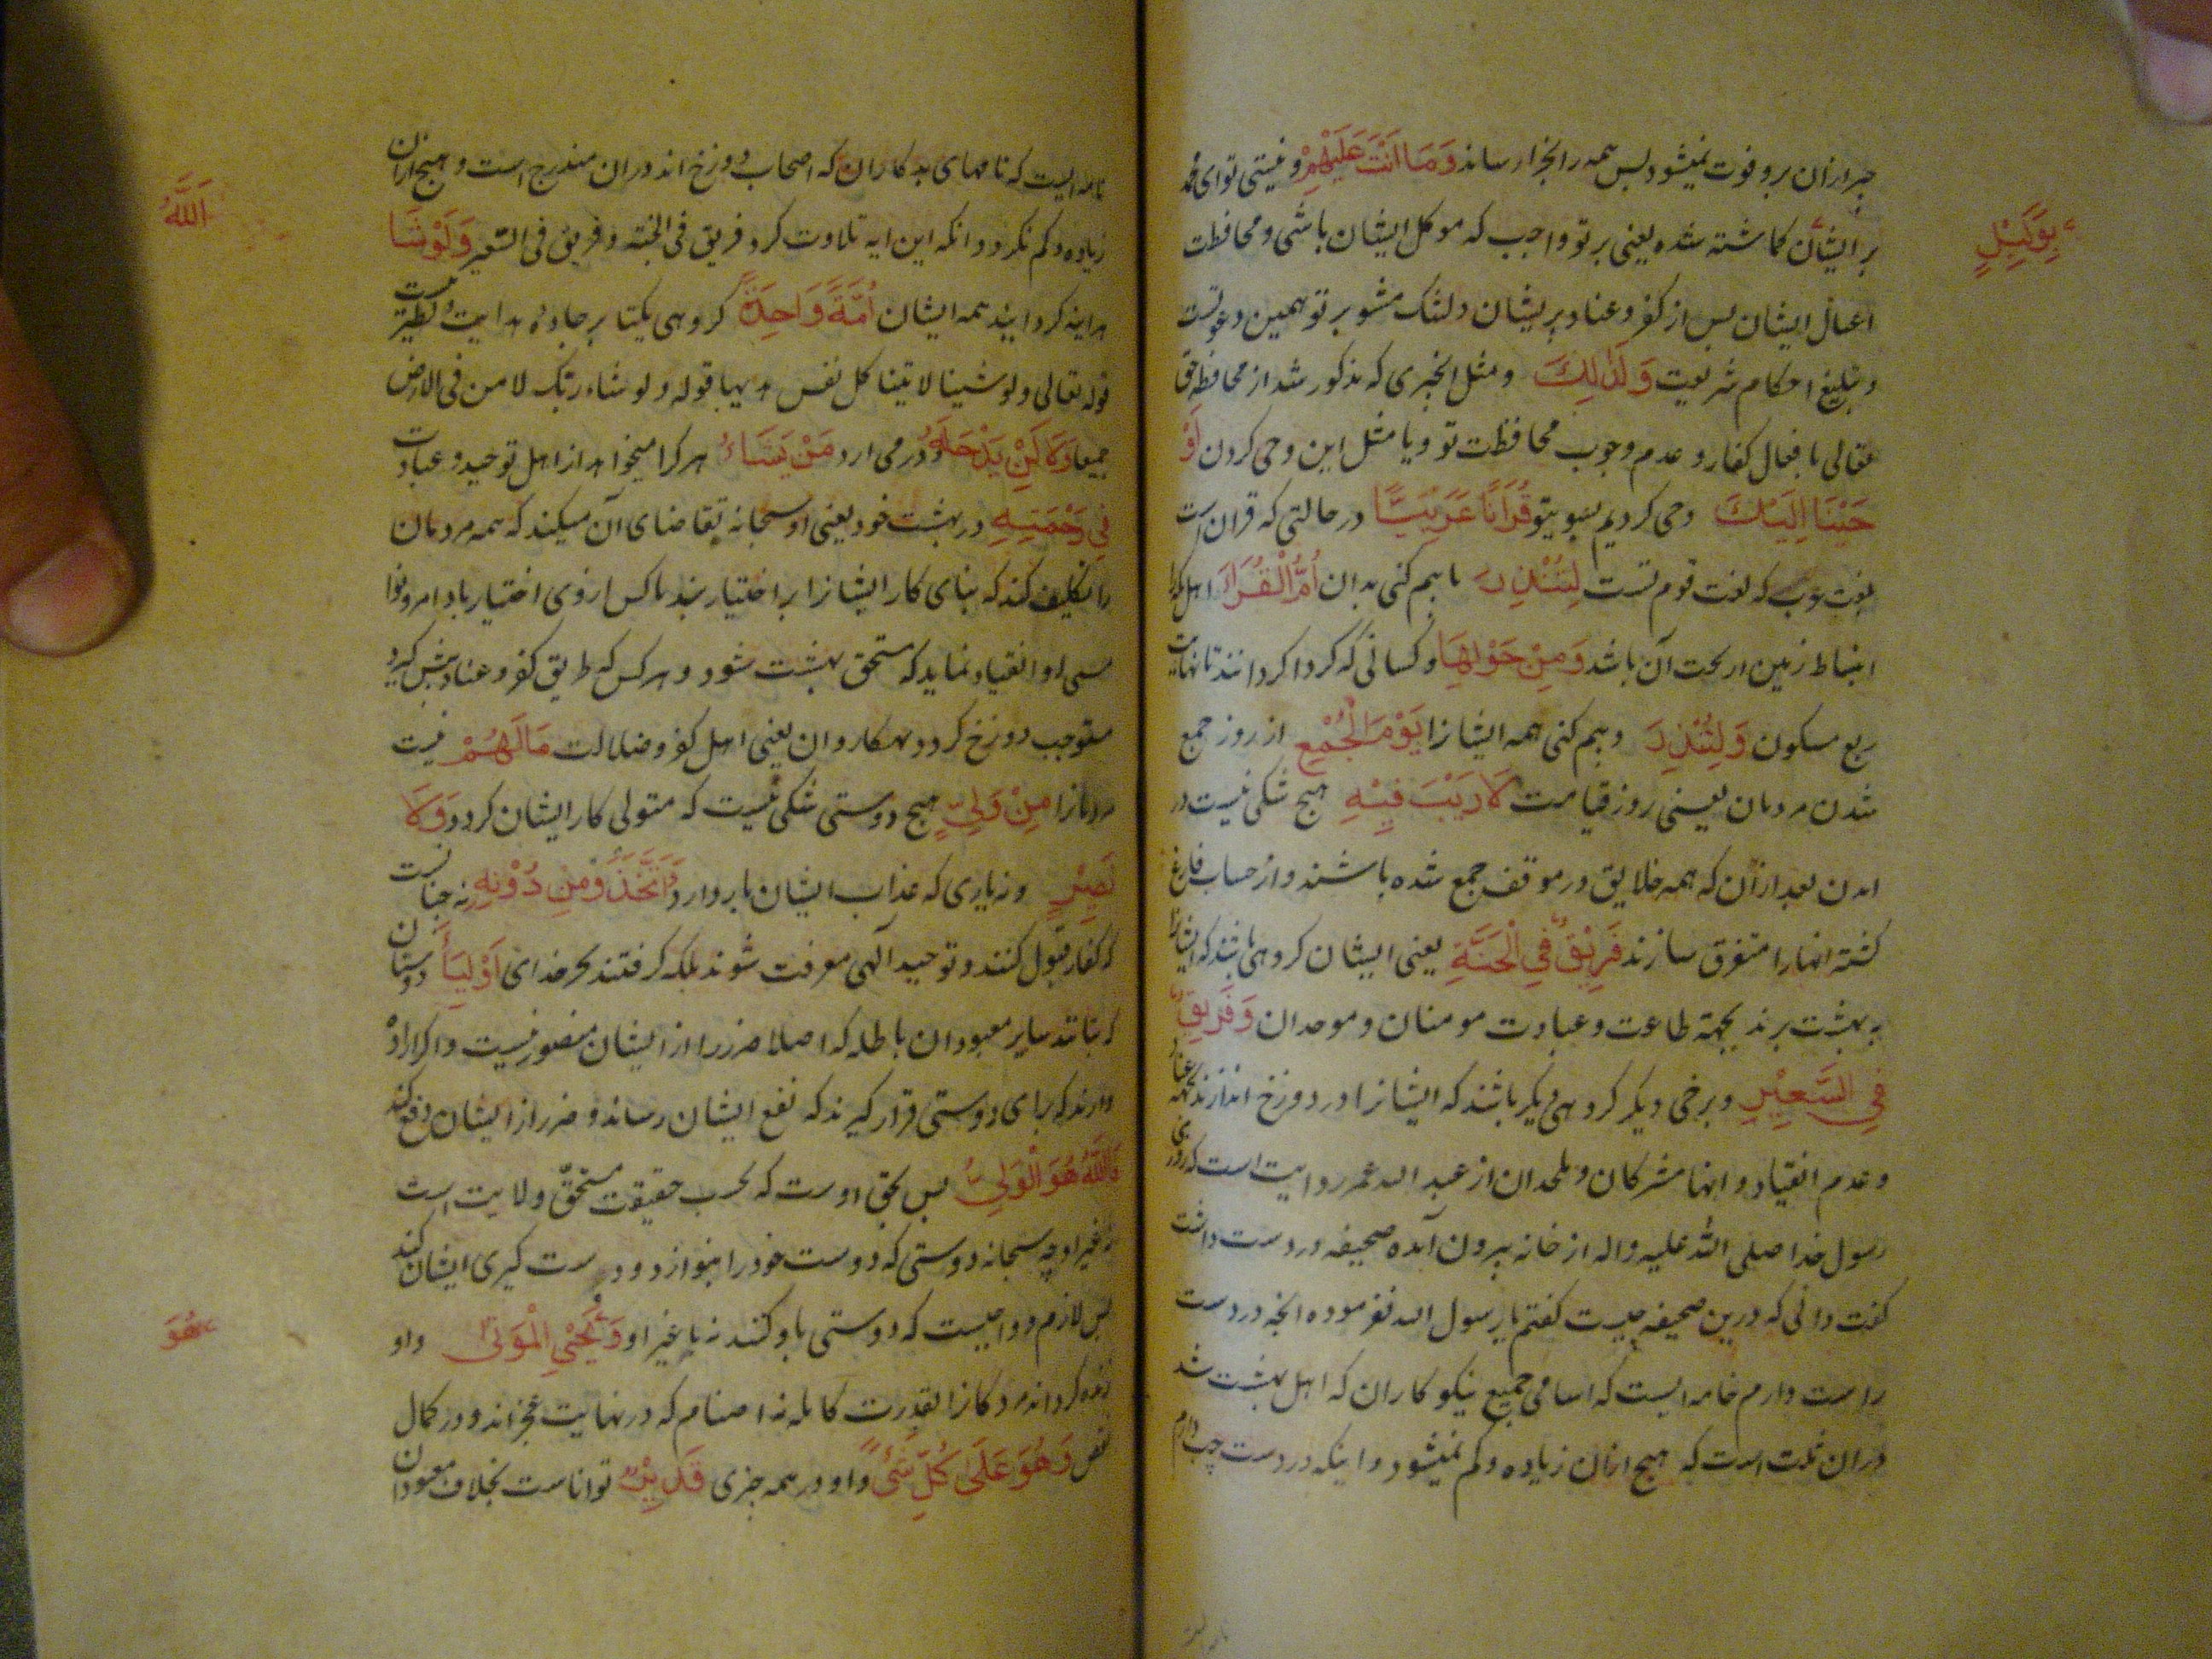 چیز ازان برو فوت نمیشود پس همه را بجزا رساند وَمَا اَنْتَ عَلَيْهِمْ و نیستی تو ای محمد
بِوَكِيْلٍ
بر ایشان کماشته شده یعنی بر تو واجب که موکل ایشان باشی و محافظت
اعمال ایشان پس از کفر و عناد بریشان دلتنک مشو بر تو همین دعوتست
و تبلیغ احکام شریعت وَكَذٰلِكَ و مثل انجیزی که مذکور شد از محافظه حق
تعالی بافعال کفار و عدم وجوب محافظت تو و یا مثل این وحی کردن اَوْ
حَيْنَا اِلَيْكَ وحی کردیم بسوی تو قُرْاٰنًا عَرَبِيًّا در حالتی که قران است
بلغت عرب که لغت قوم تست لِتُنْذِرَ تا بیم کنی بدان اُمَّ الْقُرٰى اهل مکه را
انبساط زمین از تحت آن باشد وَمِنْ حَوْلِهَا و کسانی که کردا کرد انند تا نهایت
ربع مسکون وَلِتُنْذِرَ و بیم کنی همه ایشانرا يَوْمَ الْجَمْعِ از روز جمع
شدن مردمان یعنی روز قیامت لَا رَيْبَ فِيْهِ هیچ شکی نیست در
امدن بعد ازان که همه خلایق در موقف جمع شده باشند و از حساب فارغ
کشته انها را متفرق سازند فَرِيْقٌ فِي الْجَنَّةِ یعنی ایشان کروهی باشند که ایشانرا
به بهشت برند بجهة طاعت و عبادت مومنان و موحدان وَفَرِيْقٌ
فِي السَّعِيْرِ و برخی دیکر کروهی دیکر باشند که ایشانرا در دوزخ اندازند بجهة عناد
و عدم انقیاد و انها مشرکان و ملحدان از عبد الله عمر روایت است که روزی
رسول خدا صلی الله علیه واله از خانه بیرون آمده صحیفه در دست داشت
کفت دانی که درین صحیفه چیست کفتم یا رسول الله نفرموده انچه در دست
راست دارم نامه ایست که اسامی جمیع نیکو کاران که اهل بهشت شد
دران ثبت است که هیچ ازان زیاده و کم نمیشود و اینکه در دست چپ دارم
نامه ایست که نامهای بدکاران که اصحاب دوزخ اند دران مندرج است و هیچ ازان
اَللّٰهُ
زیاده و کم نکردد و انکه این ایه تلاوت کرد فریق فی الجنة و فریق فی السعیر وَلَوْ شَاءَ
هراینه کردانیدی همه ایشان اُمَّةً وَاحِدَةً کروهی یکتا بر جاده هدایت
قوله تعالی ولو شینا لاتینا کل نفس هدیها قوله ولو شاء ربک لامن فی الارض
جمیعا وَلٰكِنْ يُدْخِلُ و در می ارد مَنْ يَشَاءُ هر کرا میخواهد از اهل توحید و عبادت
فِي رَحْمَتِهِ در بهشت خود یعنی او سبحانه تقاضای آن میکند که همه مردمان
را تکلیف کند که بنای کار ایشانرا بر اختیار نهد تا کس از روی اختیار باوامر و نواهی
او انقیاد نماید که مستحق بهشت شود و هر کس که طریق کفر و عناد پیش کیرد
مستوجب دوزخ کردد یعنی اهل کفر و ضلالت مَا لَهُمْ نیست
مر ایشانرا مِنْ وَلِيٍّ هیچ دوستی شکی نیست که متولی کار ایشان کردد وَلَا
نَصِيْرٍ و نه یاری که عذاب ایشان باز دارد اَمِ اتَّخَذُوْا مِنْ دُوْنِهِ نه چنانست
که کفار قبول کنند و توحید آلهی معرفت شوند بلکه کرفتند بجز خدای اَوْلِيَاءَ دوستان
که بتانند سایر معبودان باطله که اصلا ضرر از ایشان متصور نیست و اکر اراده
دارند که برای دوستی قرار کیرند که نفع ایشان رساند و ضرر از ایشان دفع کند
فَاللّٰهُ هُوَ الْوَلِيُّ پس بحق اوست که بحسب حقیقت مستحق ولایت است
نه غیر او چه سبحانه دوستی که دوست خود را بنوازد و دست کیری ایشان کند
پس لازم و واجبست که دوستی باو کنند نه با غیر او وَ يُحْيِ الْمَوْتٰى و او
هُوَ
زنده کرداند مردکانرا بقدرت کامله نه اصنام که در نهایت عجز اند و در کمال
نقص وَهُوَ عَلٰى كُلِّ شَيْءٍ و او در همه چیزی قَدِيْرٌ تواناست بخلاف معبودان